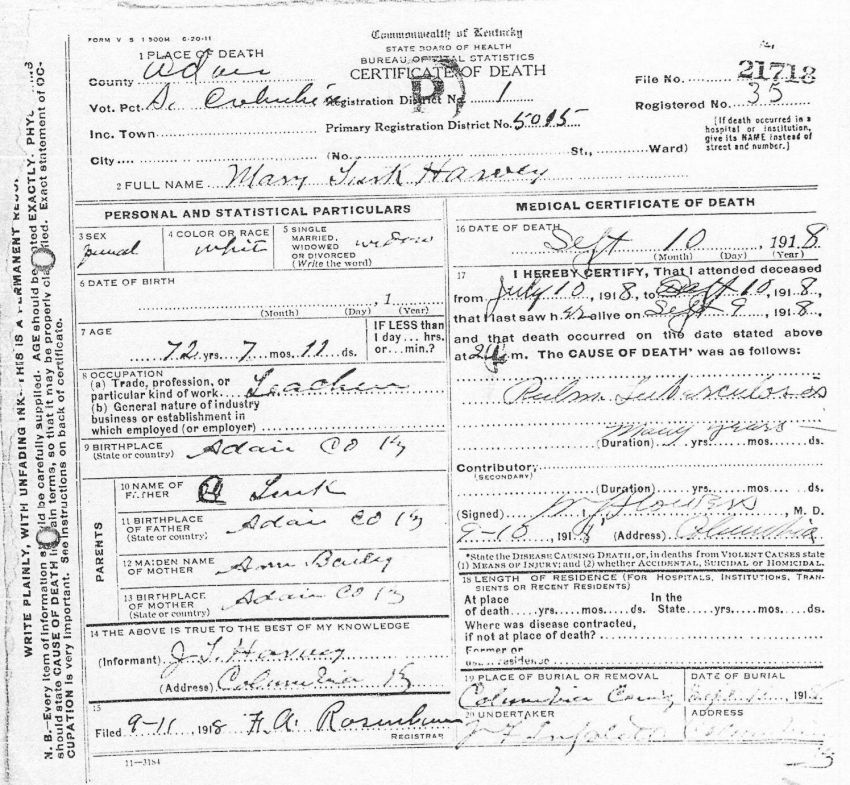 FORM V S 1 500M 6-20-11
Commonwealth of Kentucky
STATE BOARD OF HEALTH
BUREAU OF VITAL STATISTICS
CERTIFICATE OF DEATH
1 PLACE OF DEATH
County Adair
Vot. Pct. S. Columbia Registration District No. 1
Inc. Town
Primary Registration District No. 5015
City (No. St., Ward)
File No. 21718
Registered No. 35
[If death occurred in a
hospital or institution,
give its NAME instead of
street and number.]
2 FULL NAME Mary Turk Harvey
PERSONAL AND STATISTICAL PARTICULARS
3 SEX
4 COLOR OR RACE
white
5 SINGLE
MARRIED,
WIDOWED
OR DIVORCED
(Write the word)
widow
6 DATE OF BIRTH
, 1
(Month) (Day) (Year)
7 AGE
72 yrs. 7 mos. 11 ds.
IF LESS than
1 day... hrs.
or...min.?
8 OCCUPATION
(a) Trade, profession, or
particular kind of work Teacher
(b) General nature of industry
business or establishment in
which employed (or employer)
9 BIRTHPLACE
(State or country)
Adair CO Ky
PARENTS
10 NAME OF
FATHER
Turk
11 BIRTHPLACE
OF FATHER
(State or country)
Adair CO Ky
12 MAIDEN NAME
OF MOTHER
Ann Bailey
13 BIRTHPLACE
OF MOTHER
(State or country)
Adair Co Ky
14 THE ABOVE IS TRUE TO THE BEST OF MY KNOWLEDGE
(Informant) J T Harvey
(Address) Columbia Ky
15
Filed 9-11 1918 F. A. Rosenbaum
REGISTRAR
11-3184
MEDICAL CERTIFICATE OF DEATH
16 DATE OF DEATH
Sept 10, 1918
(Month) (Day) (Year)
17 I HEREBY CERTIFY, That I attended deceased
from July 10, 1918, to Sept 10, 1918,
that I last saw her alive on Sept 9, 1918,
and that death occurred on the date stated above
at m. The CAUSE OF DEATH* was as follows:
Pulm. Tuberculosis
Many years
(Duration) yrs. mos. ds.
Contributory
(SECONDARY)
(Duration) yrs. mos. ds.
(Signed) Flowers, M. D.
9-10 1918 (Address) Columbia
*State the DISEASE CAUSING DEATH, or, in deaths from VIOLENT CAUSES state
(1) MEANS OF INJURY; and (2) whether ACCIDENTAL, SUICIDAL or HOMICIDAL.
18 LENGTH OF RESIDENCE (FOR HOSPITALS, INSTITUTIONS, TRAN-
SIENTS OR RECENT RESIDENTS)
At place In the
of death yrs. mos. ds. State yrs. mos. ds.
Where was disease contracted,
if not at place of death?
Former or
usual residence
19 PLACE OF BURIAL OR REMOVAL
Columbia
DATE OF BURIAL
191
20 UNDERTAKER
ADDRESS
WRITE PLAINLY, WITH UNFADING INK--THIS IS A PERMANENT
N. B.--Every item of information should be carefully supplied. AGE should be stated EXACTLY.
should state CAUSE OF DEATH in plain terms, so that it may be properly classified. Exact statement of OC-
CUPATION is very important. See instructions on back of certificate.